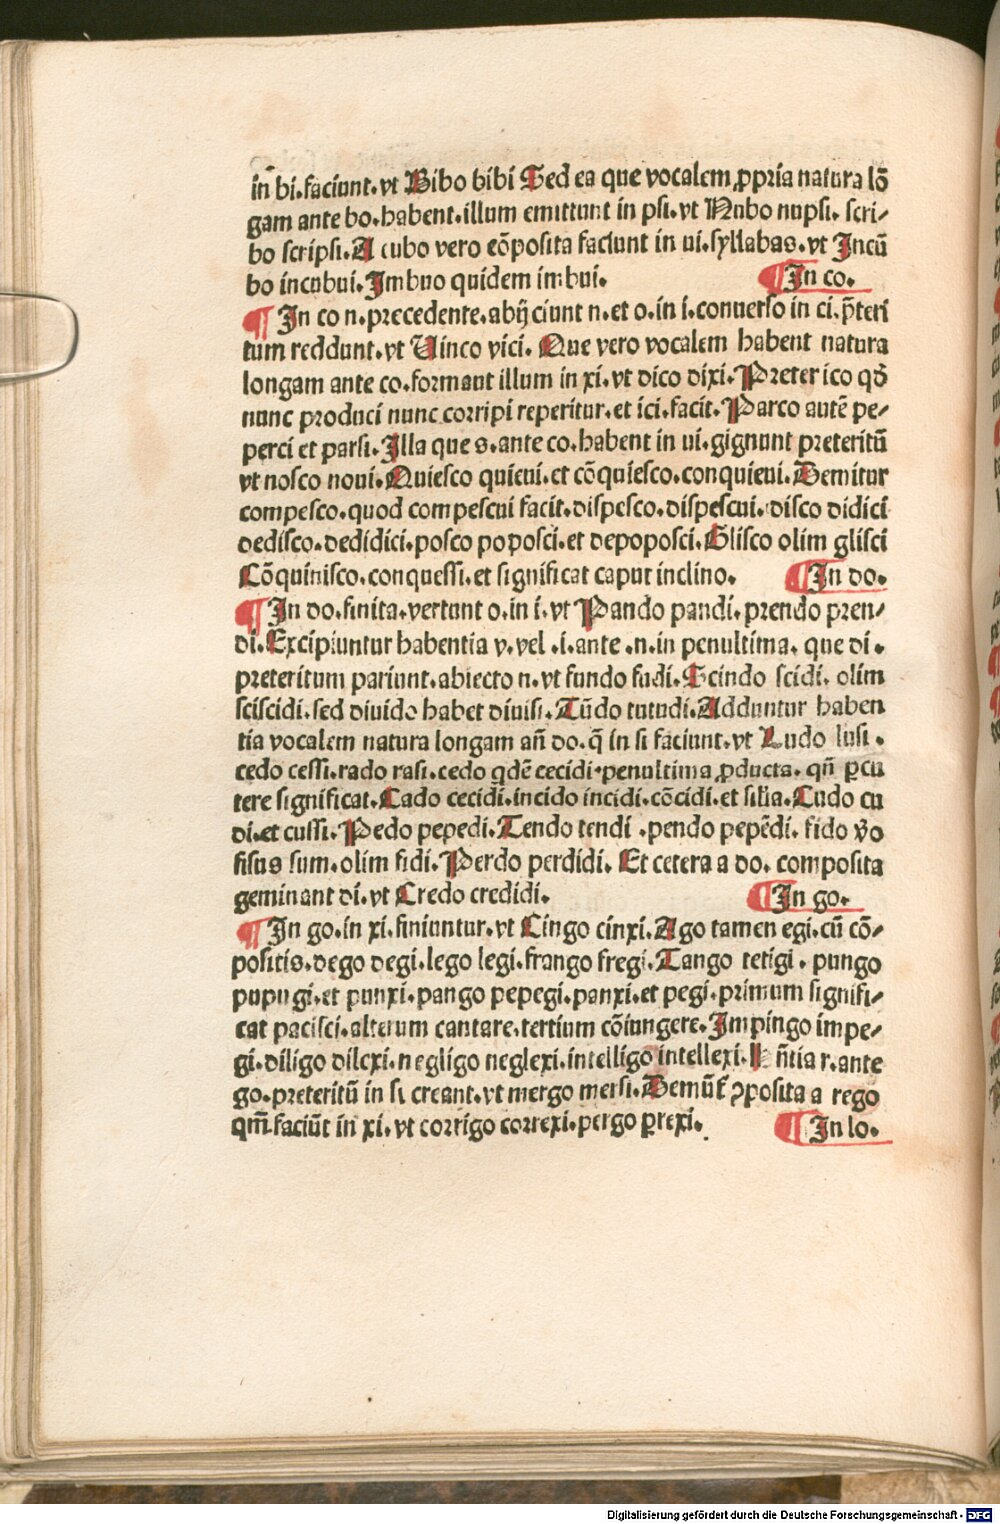 in̄ bi.faciunt.vt Bibo bibi Sed ea que vocalem ꝓpria natura lō
gam ante bo.habent.illum emittunt in psi.vt Nubo nupsi.scri/
bo scripsi.A cubo vero cōposita faciunt in ui.syllabas.vt Incū
bo incubui.Imbuo quidem imbui. ¶ In co.
¶ In co n.precedente.abijciunt n.et o.in i.conuerso in ci.p̄teri
tum reddunt.vt Uinco vici. Que vero vocalem habent natura
longam ante co.formant illum in xi.vt dico dixi.Preter ico qđ
nunc produci nunc corripi reperitur.et ici.facit.Parco autē pe/
perci et parsi.Illa que s.ante co.habent in ui.gignunt preteritū
vt nosco noui.Quiesco quieui.et cōquiesco.conquieui.Demitur
compesco.quod compescui facit.dispesco.dispescui.disco didici
dedisco.dedidici.posco poposci.et depoposci.Glisco olim glisci
Cōquinisco.conquessi.et significat caput inclino. ¶ In do.
¶ In do.finita.vertunt o.in i.vt Pando pandi.prendo pren/
di.Excipiuntur habentia v.vel .i.ante .n.in penultima. que di.
preteritum pariunt.abiecto n.vt fundo fudi.Scindo scidi. olim
sciscidi.sed diuido habet diuisi.Tūdo tutudi.Adduntur haben
tia vocalem natura longam an̄ do.q̄ in si faciunt.vt Ludo lusi.
cedo cessi.rado rasi.cedo qdē cecidi.penultima ꝓducta. qn̄ ꝑcu
tere significat.Cado cecidi.incido incidi.cōcidi.et silia.Cudo cu
di.et cussi.Pedo pepedi.Tendo tendi .pendo pepēdi. fido v̄o
fisus sum.olim fidi.Perdo perdidi. Et cetera a do. composita
geminant di.vt Credo credidi. ¶ In go.
¶ In go.in xi.finiuntur.vt Cingo cinxi.Ago tamen egi.cū cō/
positis.dego degi.lego legi.frango fregi.Tango tetigi. pungo
pupugi.et punxi.pango pepegi.panxi.et pegi.primum signifi/
cat pacisci.alterum cantare.tertium cōiungere.Impingo impe/
gi.diligo dilexi.negligo neglexi.intelligo intellexi. n̄tia r.ante
go.preteritū in si creant.vt mergo mersi.Demūt̄ ꝯposita a rego
qm̄.faciūt in xi.vt corrigo correxi.pergo ꝑrexi. ¶ In lo.
Digitalisierung gefördert durch die Deutsche Forschungsgemeinschaft - DFG